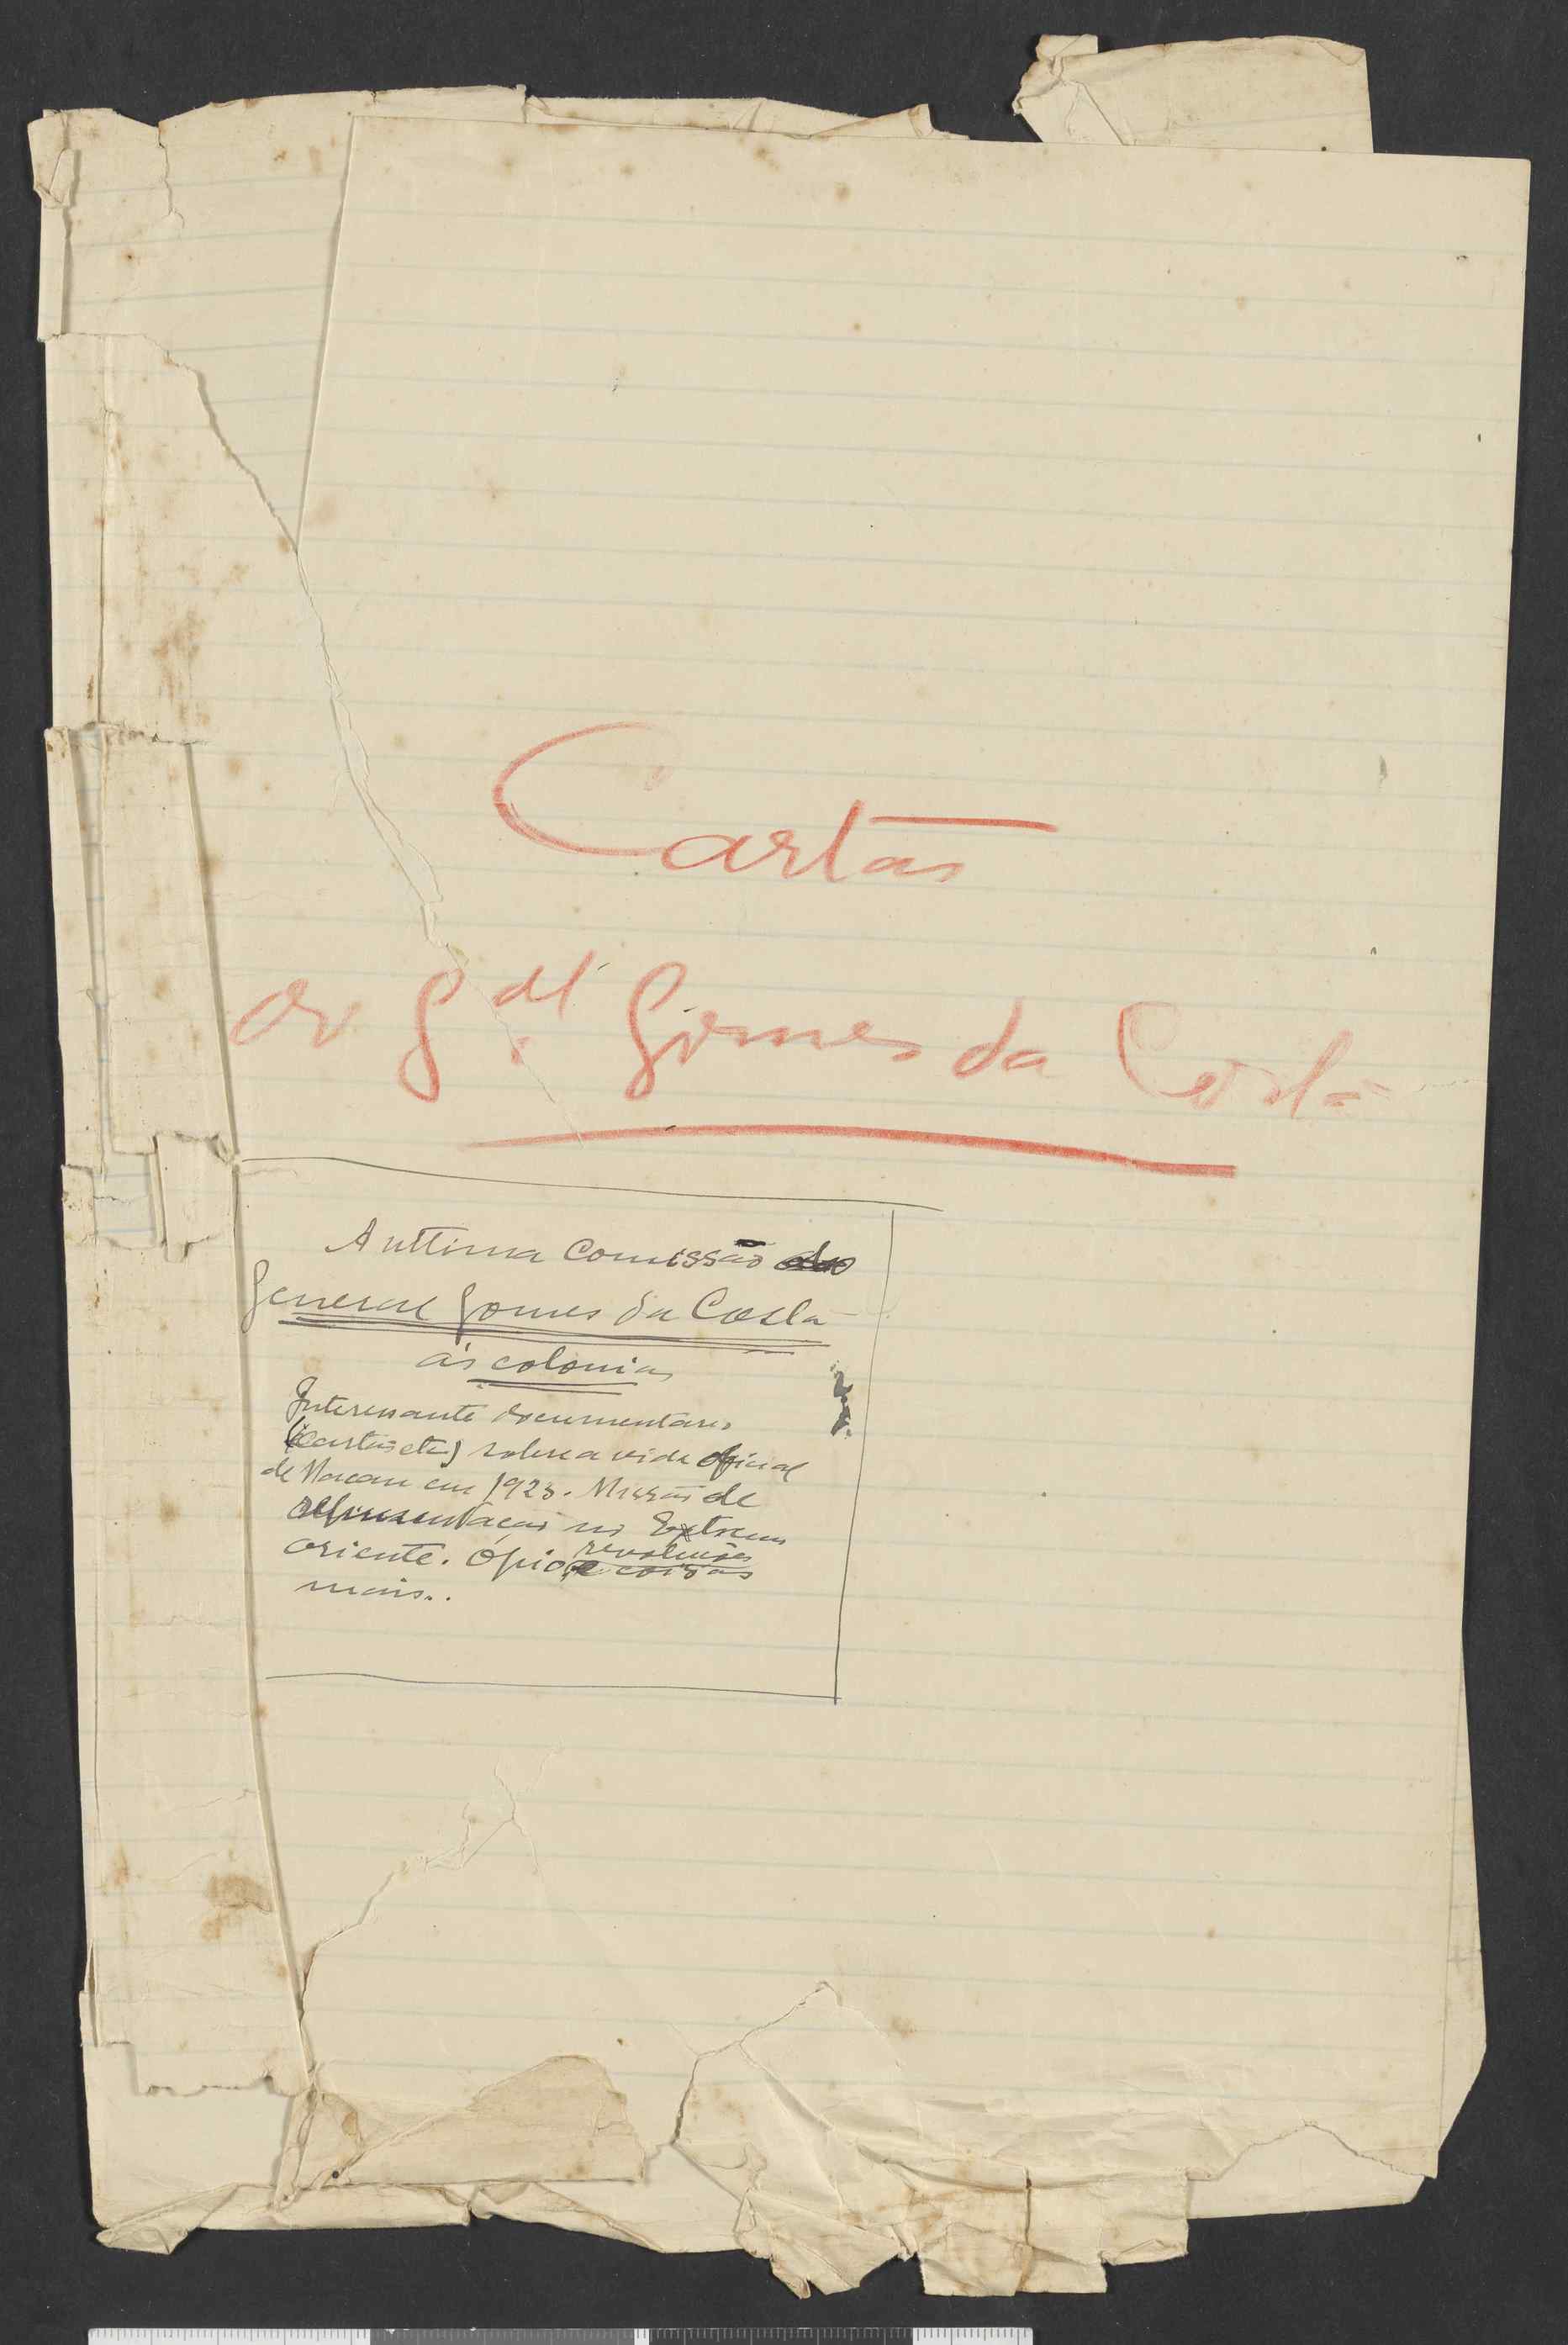 Cartas
do Gal Gomes da Costa
A ultima comissão do
General Gomes da Costa
ás colonias
Interessante documentario
(cartas etc) sobre a vida oficial
de Macau em 1923. Missão de
representação no Extremo
oriente. Ópio, revoluções
e coisas
mais..